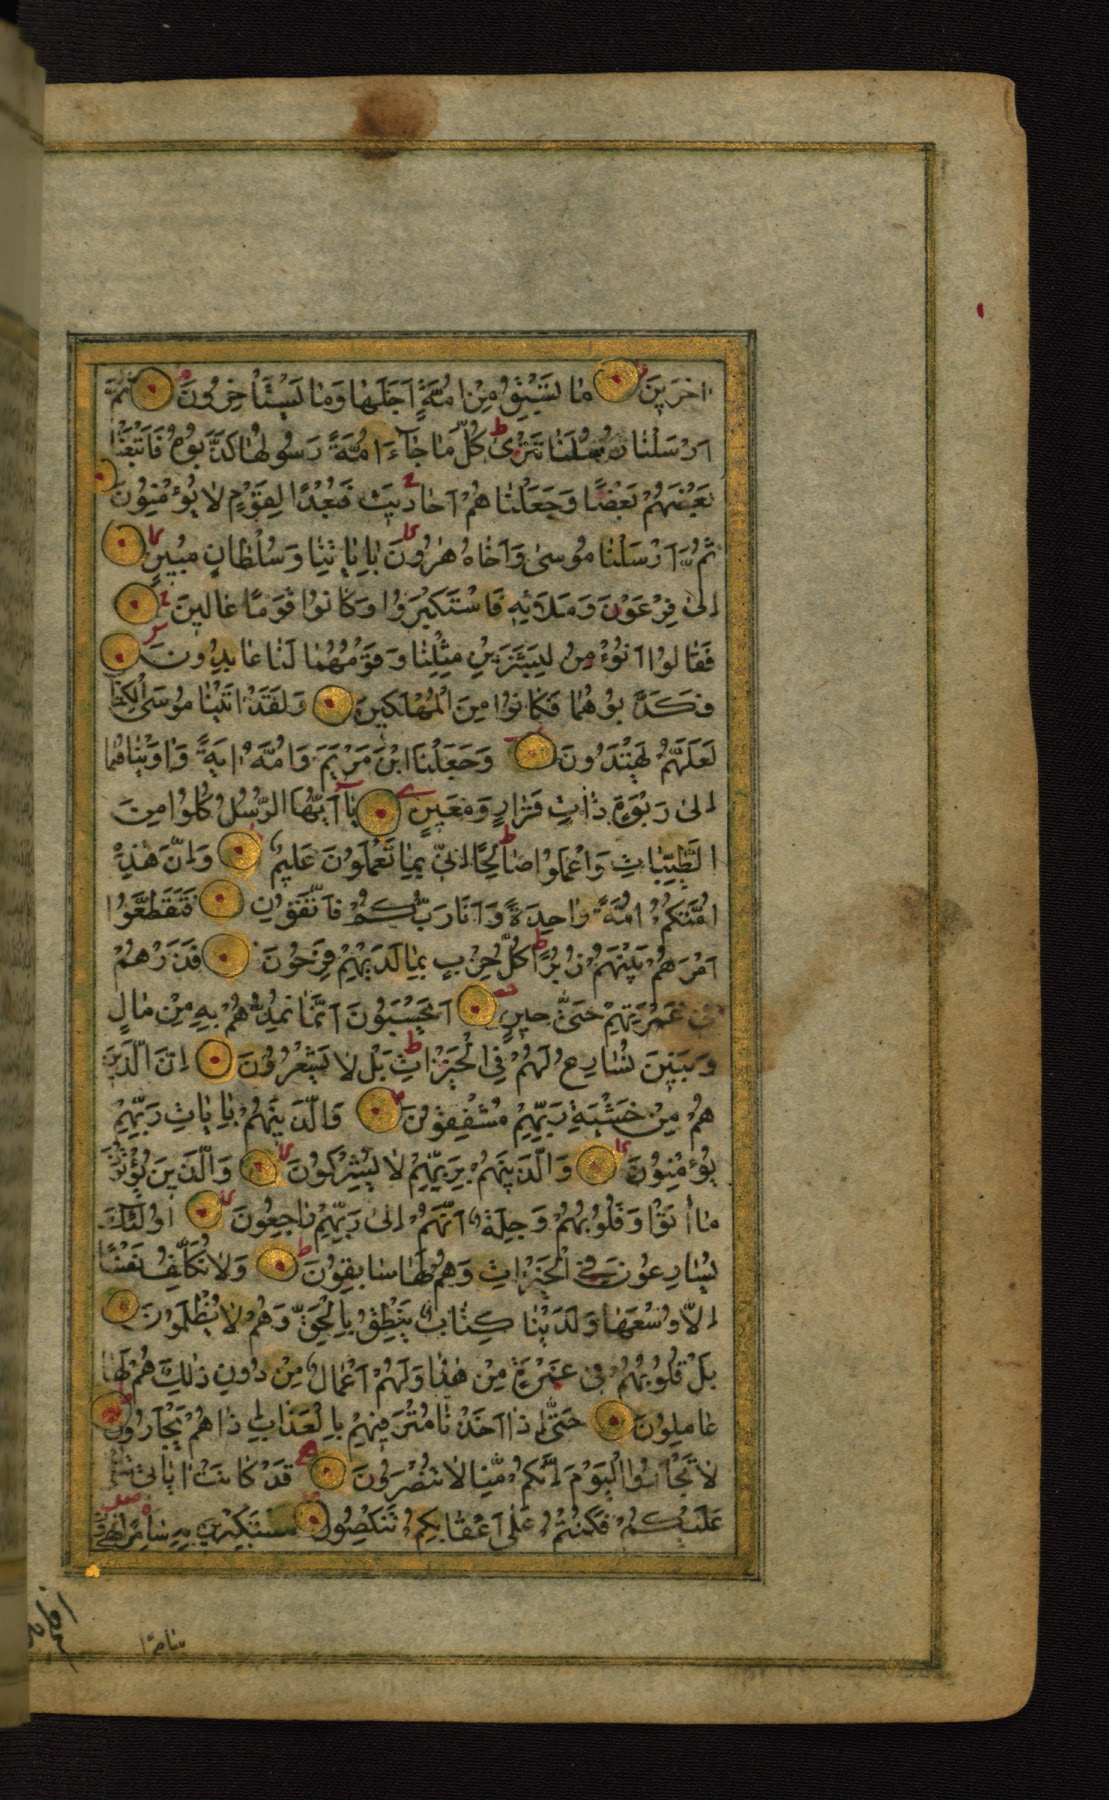 اٰخَرِينَ مٰا تَسْبِقُ مِنْ اُمَّةٍ اَجَلَهٰا وَمٰا يَسْتَأْخِرُونَ ثُمَّ
اَرْسَلْنٰا رُسُلَنٰا تَتْرىٰ كُلَّ مٰا جٰآءَ اُمَّةً رَسُولُهٰا كَذَّبُوهُ فَاَتْبَعْنٰا
بَعْضَهُمْ بَعْضًا وَجَعَلْنٰاهُمْ اَحٰادِيثَ فَبُعْدًا لِقَوْمٍ لٰا يُؤْمِنُونَ
ثُمَّ اَرْسَلْنٰا مُوسىٰ وَاَخٰاهُ هٰرُونَ بِاٰيٰاتِنٰا وَسُلْطٰانٍ مُبِينٍ
اِلىٰ فِرْعَوْنَ وَمَلَائِهِ فَاسْتَكْبَرُوا وَكٰانُوا قَوْمًا عٰالِينَ
فَقٰالُوا اَنُؤْمِنُ لِبَشَرَيْنِ مِثْلِنٰا وَقَوْمُهُمٰا لَنٰا عٰابِدُونَ
فَكَذَّبُوهُمٰا فَكٰانُوا مِنَ الْمُهْلَكِينَ وَلَقَدْ اٰتَيْنٰا مُوسَى الْكِتٰابَ
لَعَلَّهُمْ يَهْتَدُونَ وَجَعَلْنَا ابْنَ مَرْيَمَ وَاُمَّهُ اٰيَةً وَاٰوَيْنٰاهُمٰا
اِلىٰ رَبْوَةٍ ذٰاتِ قَرٰارٍ وَمَعِينٍ يٰآ اَيُّهَا الرُّسُلُ كُلُوا مِنَ
الطَّيِّبٰاتِ وَاعْمَلُوا صٰالِحًا اِنِّي بِمٰا تَعْمَلُونَ عَلِيمٌ وَاِنَّ هٰذِهِ
اُمَّتُكُمْ اُمَّةً وٰاحِدَةً وَاَنَا رَبُّكُمْ فَاتَّقُونِ فَتَقَطَّعُوا
اَمْرَهُمْ بَيْنَهُمْ زُبُرًا كُلُّ حِزْبٍ بِمٰا لَدَيْهِمْ فَرِحُونَ فَذَرْهُمْ
فِي غَمْرَتِهِمْ حَتّىٰ حِينٍ اَيَحْسَبُونَ اَنَّمٰا نُمِدُّهُمْ بِهِ مِنْ مٰالٍ
وَبَنِينَ نُسٰارِعُ لَهُمْ فِي الْخَيْرٰاتِ بَلْ لٰا يَشْعُرُونَ اِنَّ الَّذِينَ
هُمْ مِنْ خَشْيَةِ رَبِّهِمْ مُشْفِقُونَ وَالَّذِينَهُمْ بِاٰيٰاتِ رَبِّهِمْ
يُؤْمِنُونَ وَالَّذِينَهُمْ بِرَبِّهِمْ لٰا يُشْرِكُونَ وَالَّذِينَ يُؤْتُونَ
مٰا اٰتَوْا وَقُلُوبُهُمْ وَجِلَةٌ اَنَّهُمْ اِلىٰ رَبِّهِمْ رٰاجِعُونَ اُولٰئِكَ
يُسٰارِعُونَ فِي الْخَيْرٰاتِ وَهُمْ لَهٰا سٰابِقُونَ وَلٰا نُكَلِّفُ نَفْسًا
اِلّٰا وُسْعَهٰا وَلَدَيْنٰا كِتٰابٌ يَنْطِقُ بِالْحَقِّ وَهُمْ لٰا يُظْلَمُونَ
بَلْ قُلُوبُهُمْ فِي غَمْرَةٍ مِنْ هٰذٰا وَلَهُمْ اَعْمٰالٌ مِنْ دُونِ ذٰلِكَ هُمْ لَهٰا
عٰامِلُونَ حَتّىٰ اِذٰا اَخَذْنٰا مُتْرَفِيهِمْ بِالْعَذٰابِ اِذٰا هُمْ يَجْأَرُونَ
لٰا تَجْأَرُوا الْيَوْمَ اِنَّكُمْ مِنّٰا لٰا تُنْصَرُونَ قَدْ كٰانَتْ اٰيٰاتِي تُتْلىٰ
عَلَيْكُمْ فَكُنْتُمْ عَلىٰ اَعْقٰابِكُمْ تَنْكِصُونَ مُسْتَكْبِرِينَ بِهِ سٰامِرًا
سٰامِرًا